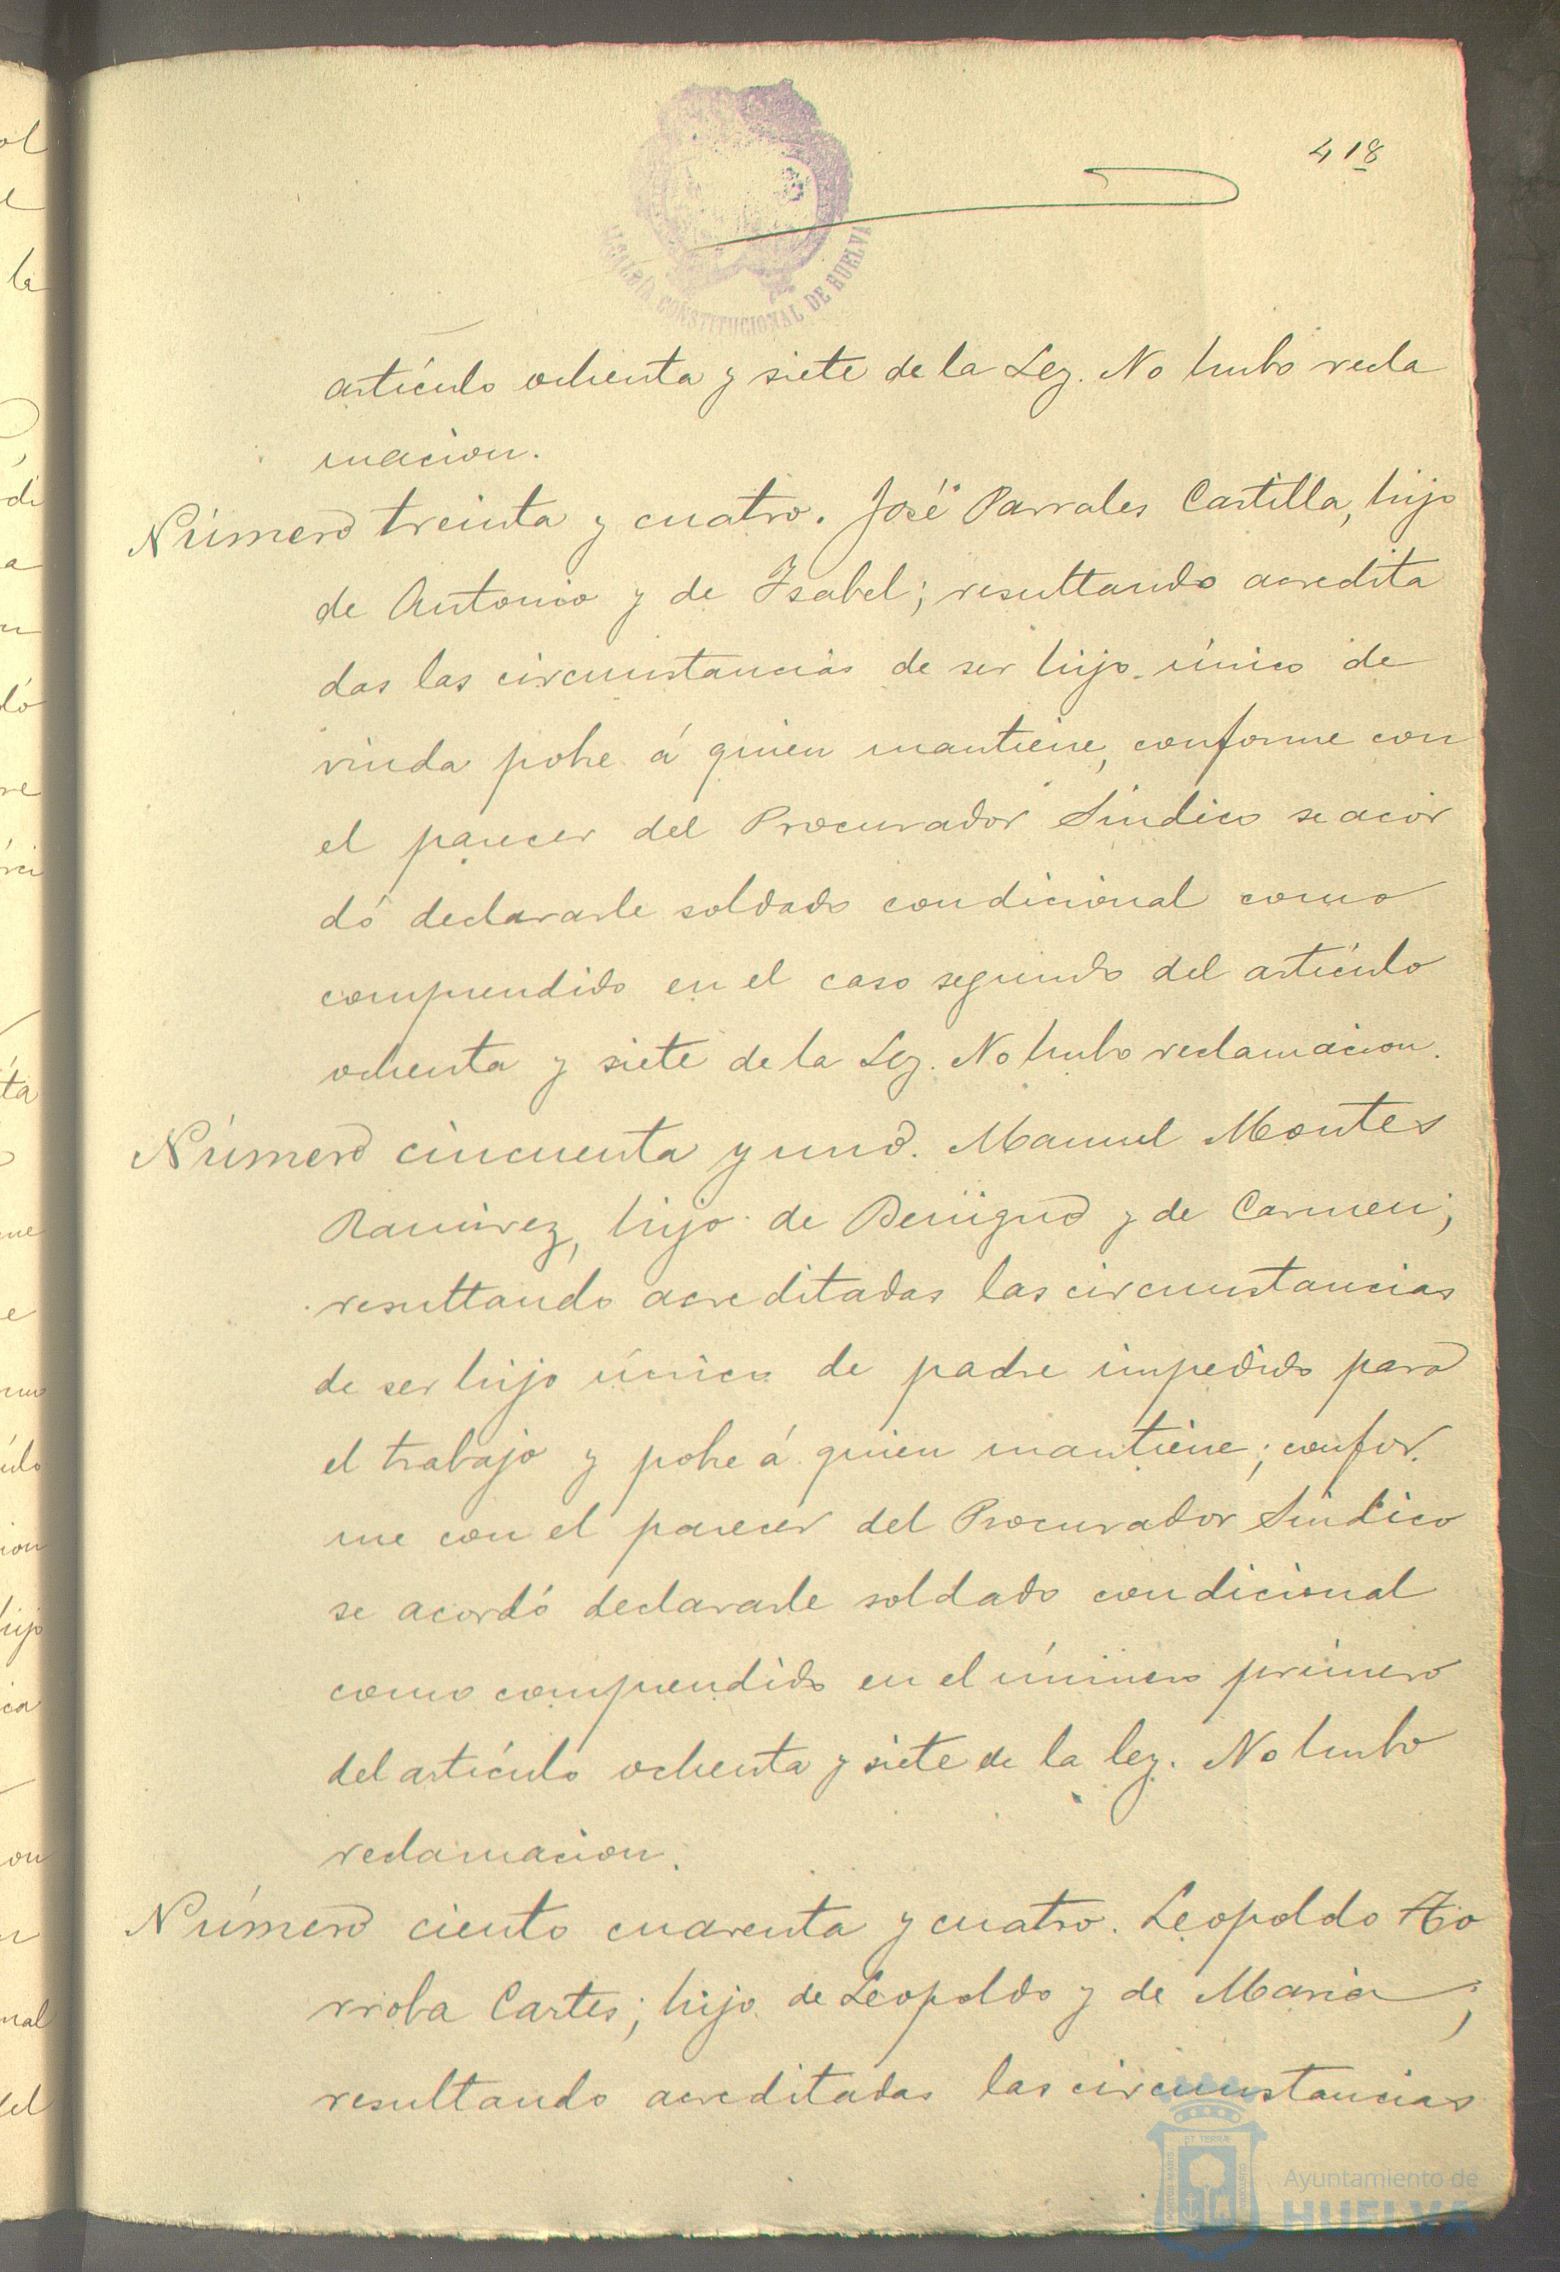 418
ALCALDÍA CONSTITUCIONAL DE HUELVA
artículo ochenta y siete de la Ley. No hubo recla
macion.
Número treinta y cuatro. José Parrales Castilla, hijo
de Antonio y de Isabel; resultando acredita
das las circunstancias de ser hijo único de
viuda pobre á quien mantiene, conforme con
el parecer del Procurador Síndico se acor
dó declararle soldado condicional como
comprendido en el caso segundo del artículo
ochenta y siete de la Ley. No hubo reclamacion.
Número cincuenta y uno. Manuel Montes
Ramirez, hijo de Benigno y de Carmen;
resultando acreditadas las circunstancias
de ser hijo único de padre impedido para
el trabajo y pobre á quien mantiene; confor
me con el parecer del Procurador Síndico
se acordó declararle soldado condicional
como comprendido en el número primero
del artículo ochenta y siete de la ley. No hubo
reclamacion.
Número ciento cuarenta y cuatro. Leopoldo
rroba Cartes; hijo de Leopoldo y de Maria;
resultando acreditadas las circunstancias
Ayuntamiento de
HUELVA